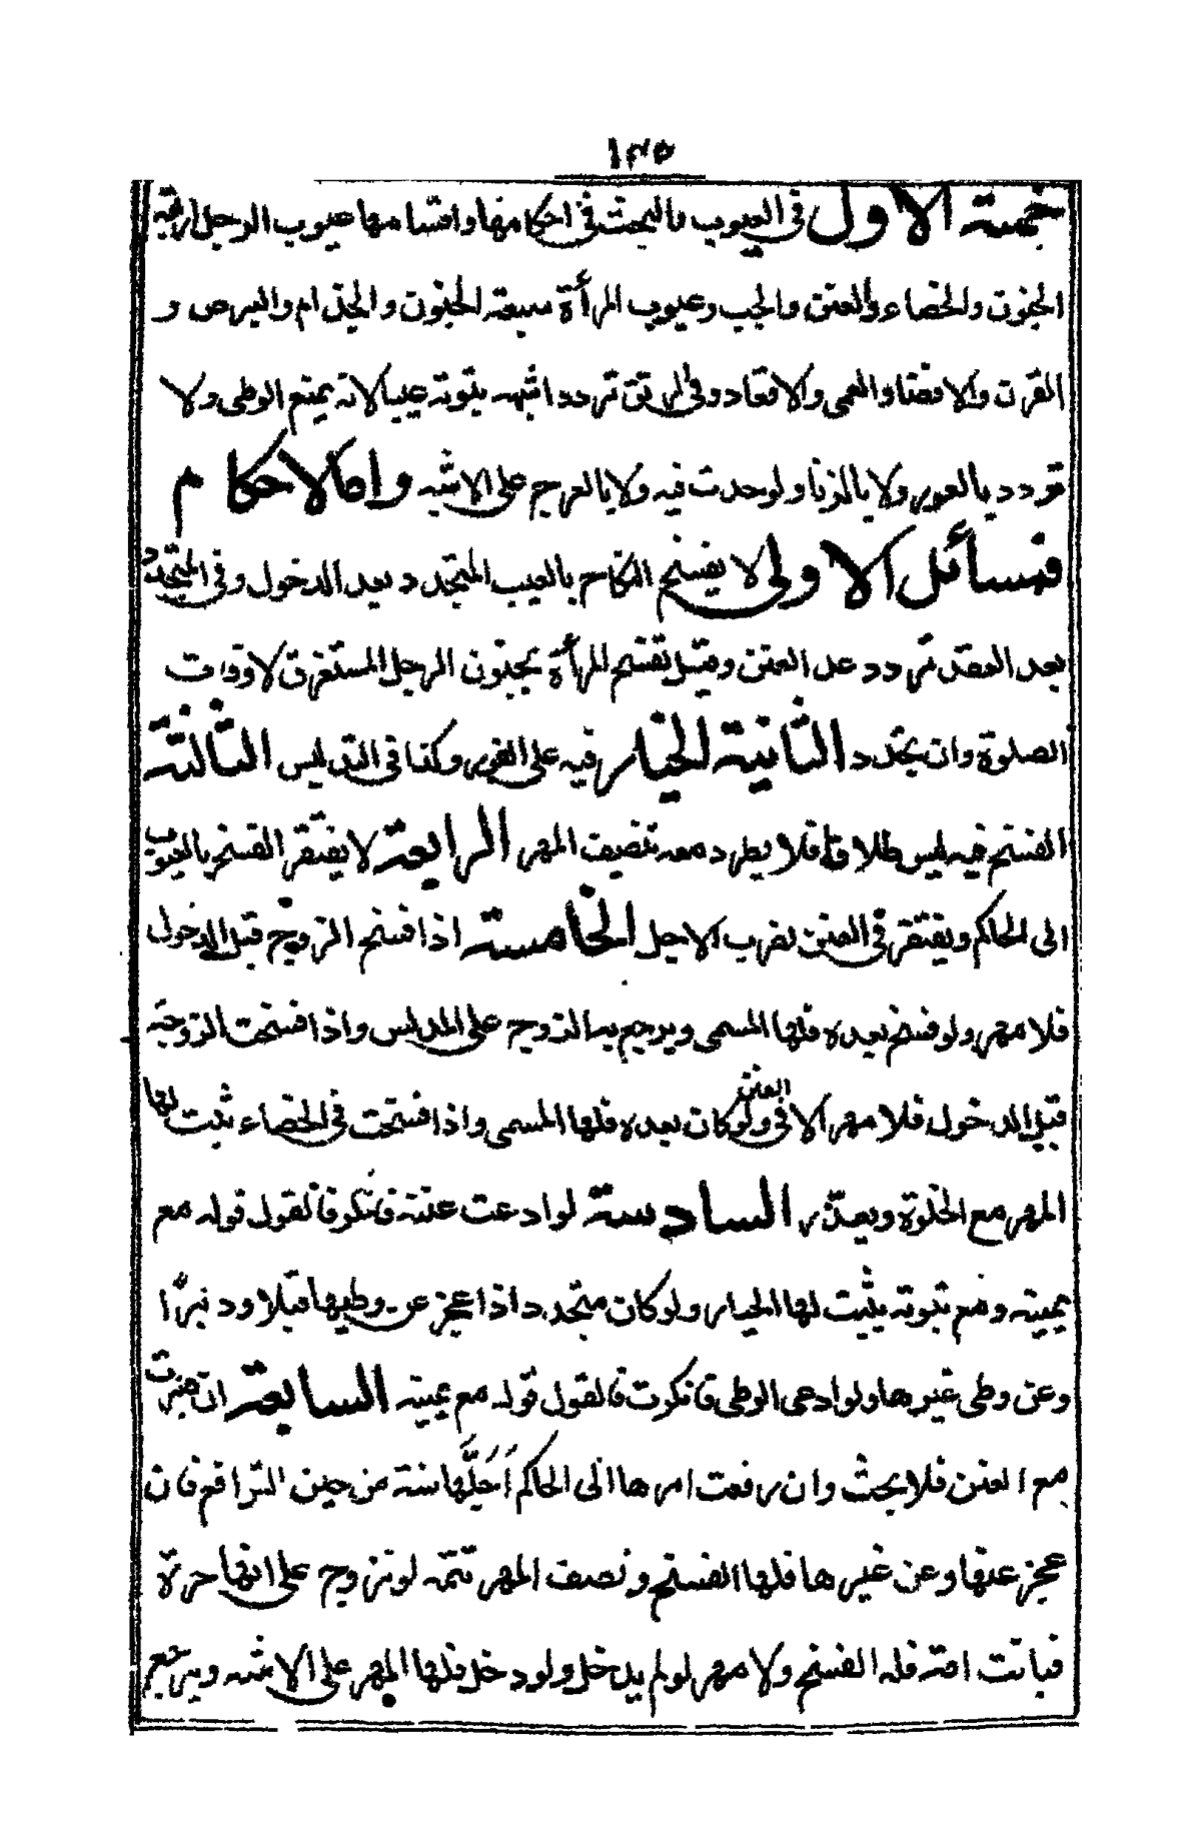 ١٣٥
خمسة الاول في العيوب والبحث في احكامها واقسامها عيوب الرجل اربعة
الجنون والخصاء والعنن والجب وعيوب المرأة سبعة الجنون والجذام والبرص و
القرن والافضاء والعمى والاقعاد وفي الرتق تردد اشبهه ثبوته عيبا لانه يمنع الوطى ولا
تردد بالعور ولا بالزنا ولو حدت فيه ولا بالعرج على الاشبه واما الاحكام
فمسائل الاولى لا يفسخ النكاح بالعيب المتجدد بعد الدخول وفي المتجدد
بعد العقد تردد عدا العنن وقيل تفسخ المرأة بجنون الرجل المستغرق لاوقات
الصلوة وان تجدد الثانية الخيار فيه على الفور وكذا في التدليس الثالثة
الفسخ فيه ليس طلاقا فلا يطرد معه تنصيف المهر الرابعة لا يفتقر الفسخ بالعيوب
الى الحاكم ويفتقر في العنن لضرب الاجل الخامسة اذا فسخ الزوج قبل الدخول
فلا مهر ولو فسخ بعده فلها المسمى ويرجع به الزوج على المدلس واذا فسخت الزوجة
قبل الدخول فلا مهر الا في العنن ولو كان بعده فلها المسمى واذا فسخت في الخصاء ثبت لها
المهر مع الخلوة ويعذر السادسة لو ادعت عننه فانكر فالقول قوله مع
يمينه ومع ثبوته يثبت لها الخيار ولو كان متجدد اذا عجز عن وطيها قبلا ودبرا
وعن وطى غيرها ولو ادعى الوطى فانكرت فالقول قوله مع يمينه السابعة ان صبرت
مع العنن فلا بحث وان رفعت امرها الى الحاكم اَجَلَّها سنة من حين الترافع فان
عجز عنها وعن غيرها فلها الفسخ ونصف المهر تتمه لو تزوج على انها حرة
فبانت امة فله الفسخ ولا مهر لو لم يدخل ولو دخل فلها المهر على الاشبه ويرجع